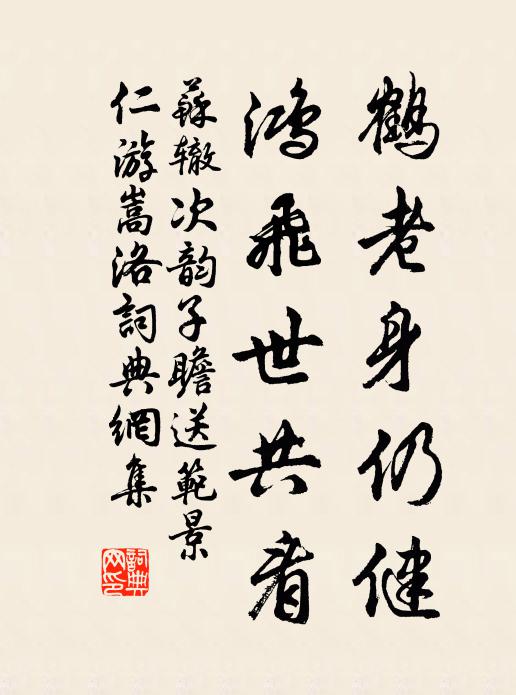 鶴老身仍健
鴻飛世共看
蘇辙次韵子瞻送範景
仁游嵩洛詞典網集
詞典
网印